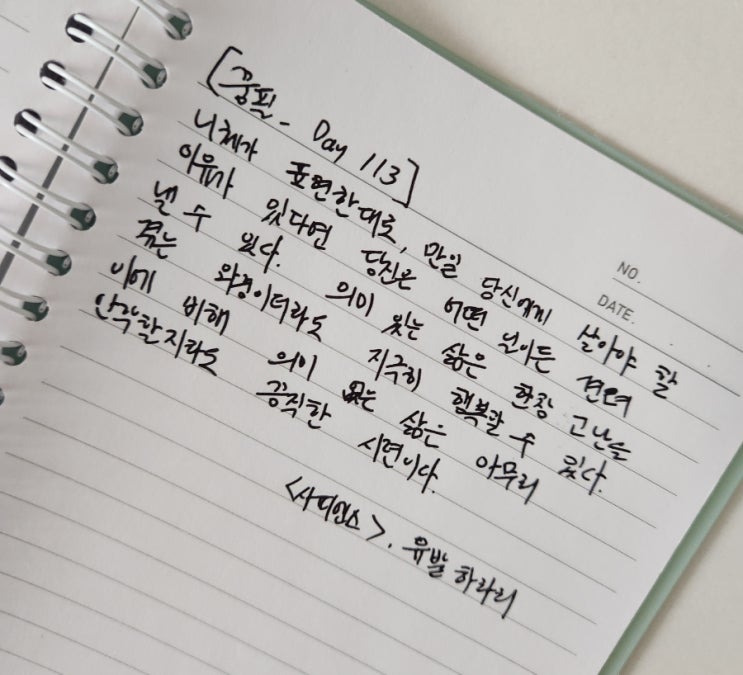 [ - Day 113]
니체가 표현한대로, 만일 당신에게 살아야 할
이유가 있다면 당신은 어떤 일이든 견뎌
낼 수 있다. 의미 있는 삶은 한창 고난을
겪는 와중이더라도 지극히 행복할 수 있다.
이에 비해 의미 없는 삶은 아무리
안락할지라도 끔찍한 시련이다.
<사피엔스>, 유발 하라리
NO.
DATE.